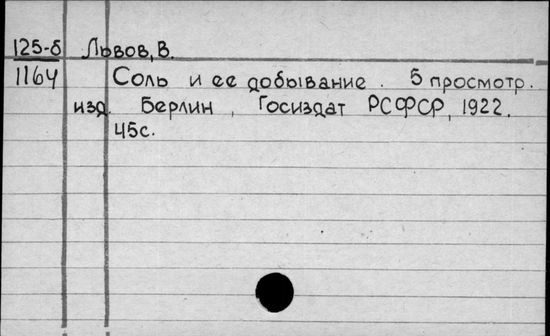 125-б Львов, В.
1164 Соль и ее добывание. 5 просмотр.
изд. Берлин, Госиздат РСФСР, 1922.
45с.